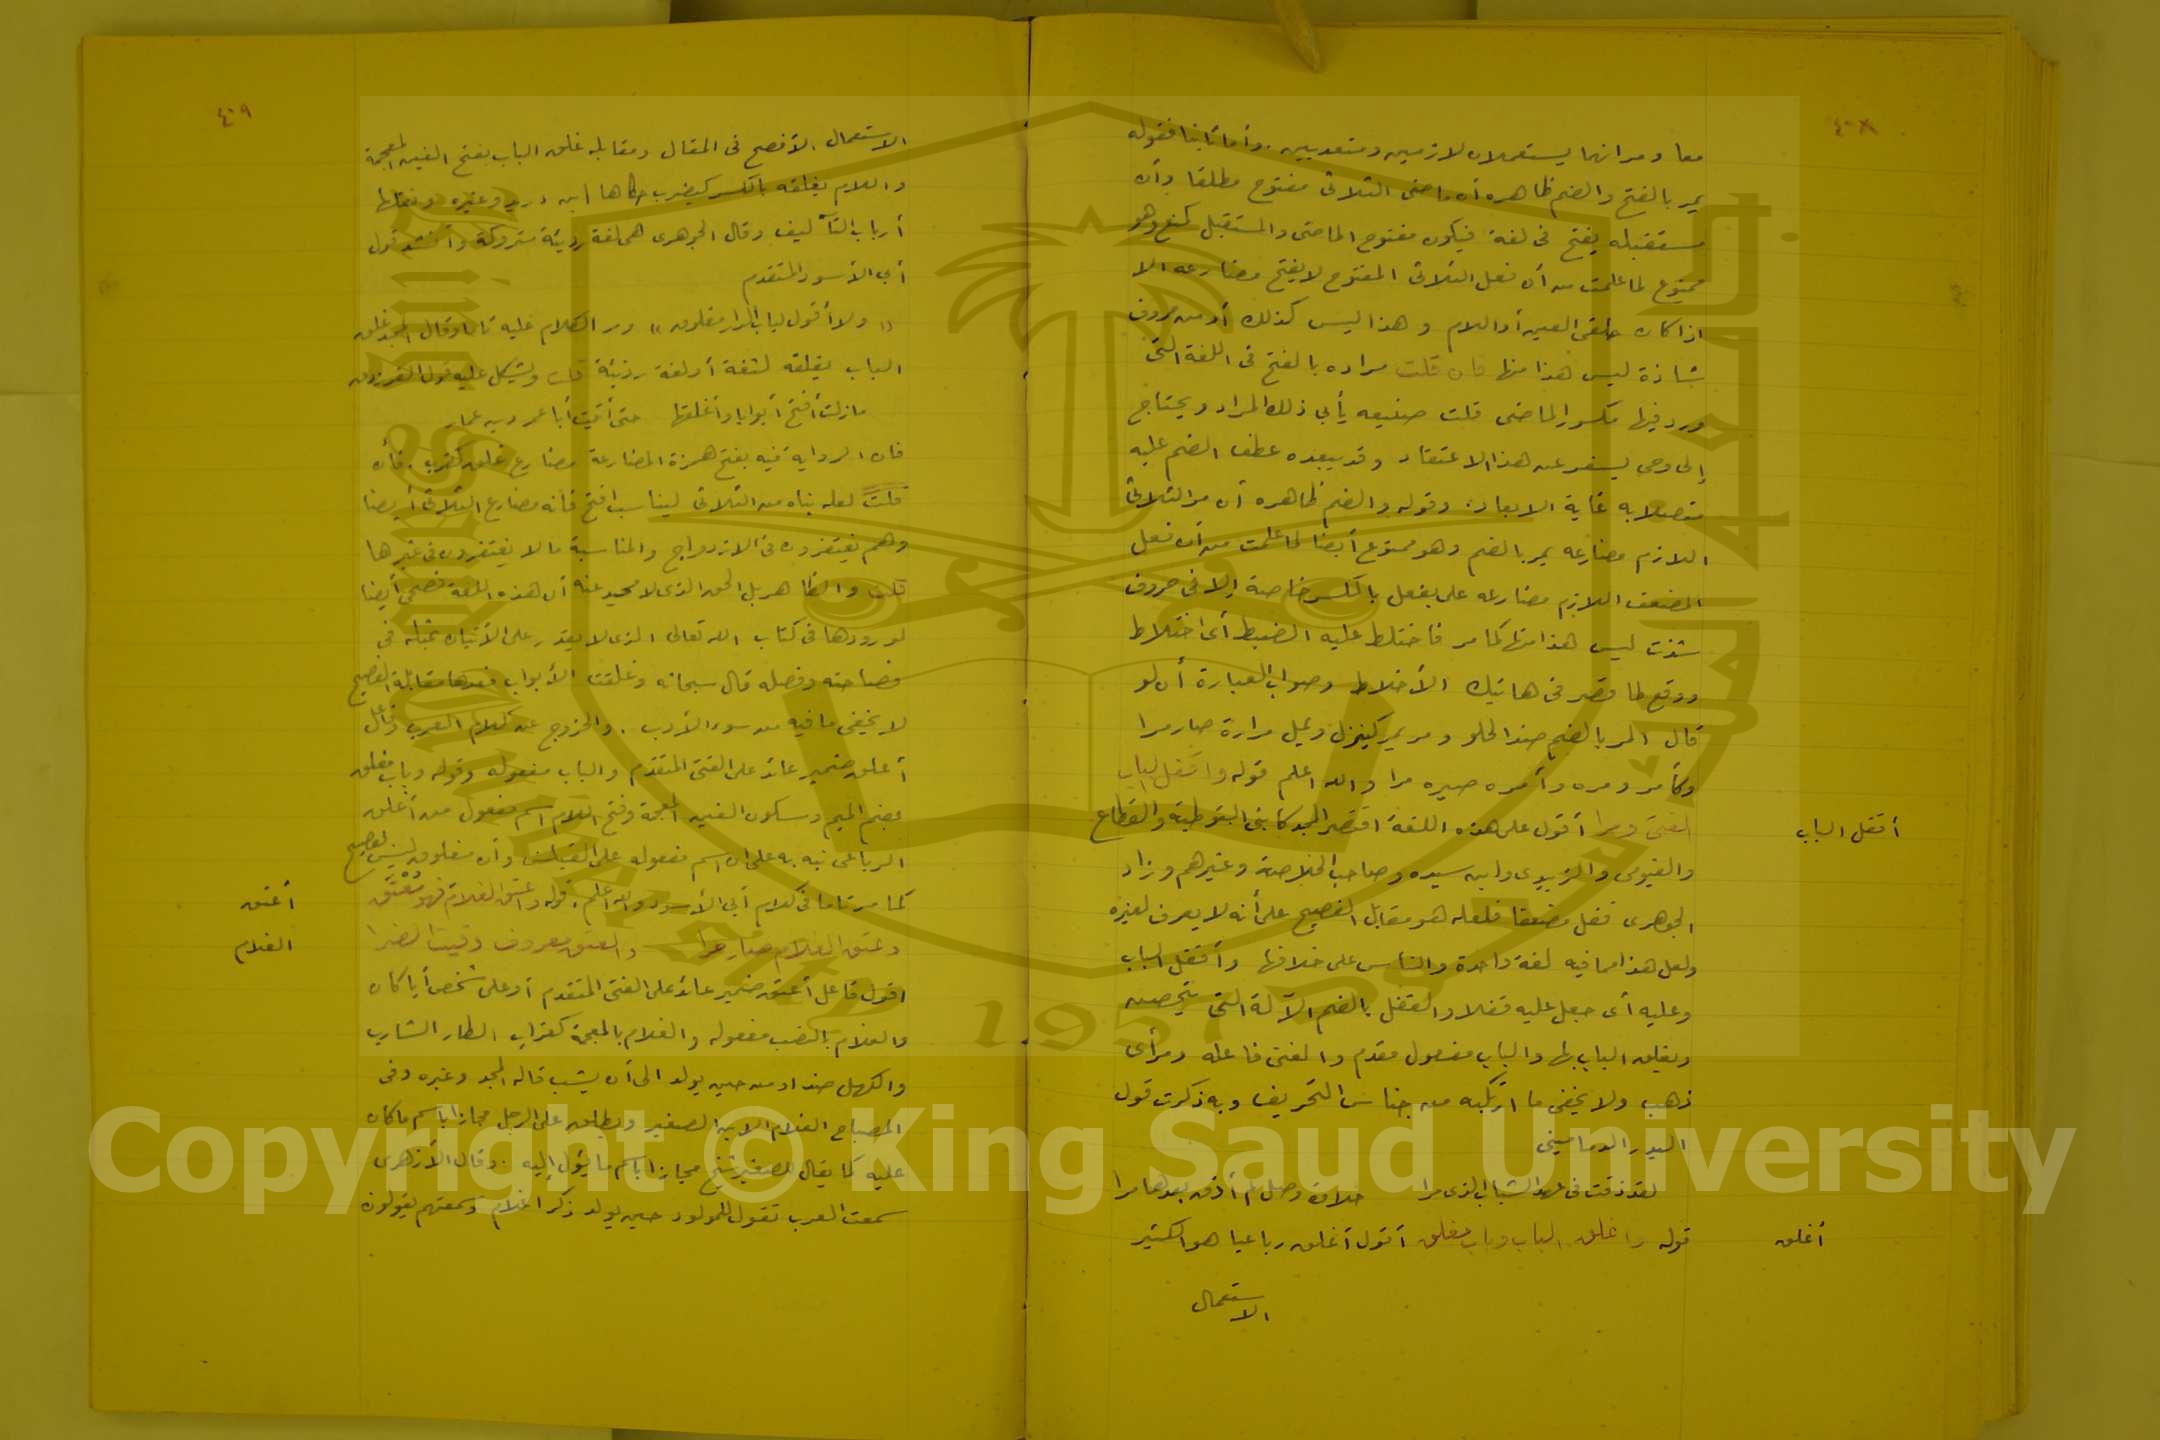 ٤٠٨
معا ومر انهما يستعملان لازمين ومتعديين. وأما ثانيا فقوله
يمر بالفتح والضم ظاهره أن ماضى الثلاثى مفتوح مطلقا وأن
مستقبله يفتح فى لغة فيكون مفتوح الماضى والمستقبل كمنع وهو
ممنوع لما علمت من أن فعل الثلاثى المفتوح لا يفتح مضارعه الا
اذا كان حلقى العين أو اللام وهذا ليس كذلك أو من حروف
شاذة ليس هذا منها فان قلت مراده بالفتح فى اللغة التى
ورد فيها مكسور الماضى قلت صنيعه يأبى ذلك المراد ويحتاج
إلى وحى يسفر عن هذا الاعتقاد وقد يبعده عطف الضم عليه
متصلا به غاية الابعاد. وقوله والضم ظاهره أن مر الثلاثى
اللازم مضارعه يمر بالضم وهو ممنوع أيضا لما علمت من أن فعل
المضعف اللازم مضارعه على يفعل بالكسر خاصة إلا فى حروف
شذت ليس هذا منها كما مر فاختلط عليه الضبط أى اختلاط
ووقع لما قصر فى هاتيك الأخلاط وصواب العبارة أن لو
قال المر بالضم ضد الحلو ومر يمر كينزل ويمل مرارة صار مرا
وكأمر ومره وأمره صيره مرا والله اعلم قوله واقفل الباب
الفتى ومرا أقول على هذه اللغة اقتصر المجد كابنى القوطية والقطاع
أقفل الباب
والفيومى والزبيدى وابن سيده وصاحب الخلاصة وغيرهم وزاد
الجوهرى قفل مضعفا فلعله هو مقابل الفصيح على أنه لا يعرف لغيره
ولعل هذا مما فيه لغة واحدة والناس على خلافها وأقفل الباب
وعليه أى جعل عليه قفلا والقفل بالضم الآلة التى يتحصن
ويغلق الباب بها والباب مفعول مقدم والفتى فاعله ومر أى
ذهب ولا يخفى ما ارتكبه من جناس التحريف وبه ذكرت قول
البدر الدمامينى
لقد ذقت فى عهد الشباب الذى مرا حلاوة وصل لم أذق بعدها مرا
قوله واغلق الباب وباب مغلق أقول أغلق رباعيا هو الكثير
أغلق
الاستعمال
٤٠٩
الاستعمال الأفصح فى المقال ومقابله غلق الباب بفتح الغين المعجمة
واللام يغلقه بالكسر كيضرب حكاها ابن دريد وغيره ونقلها
أرباب التآليف وقال الجوهرى هى لغة رديئة متروكة وأنشد قول
أبى الأسود المتقدم
« ولا أقول لباب الدار مغلوق » ومر الكلام عليه تاما وقال المجد غلق
الباب يغلقه لثغة أو لغة رديئة قلت ويشكل عليه قول الفرزدق
مازلت أفتح أبوابا وأغلقها حتى أتيت أبا عمرو بن عمار
فان الرواية فيه بفتح همزة المضارعة مضارع غلق كضرب. فان
قلت لعله بناه من الثلاثى ليناسب افتح فانه مضارع الثلاثى أيضا
وهم يغتفرون فى الازدواج والمناسبة ما لا يغتفرون فى غيرها
قلت والظاهر بل الحق الذى لا محيد عنه أن هذه اللغة فصحى أيضا
لورودها فى كتاب الله تعالى الذى لا يقدر على الاتيان بمثله فى
فصاحته وفضله قال سبحانه وغلقت الأبواب فعدها مقابلة الفصيح
لا يخفى ما فيه من سوء الأدب. والخروج عن كلام العرب وفاعل
أغلق ضمير عائد على الفتى المتقدم والباب مفعوله وقوله وباب مغلق
بضم الميم وسكون الغين المعجمة وفتح اللام اسم مفعول من أغلق
الرباعى نبه به على ان اسم مفعوله على القياس وأن مغلوق ليس بفصيح
كما مر تاما فى كلام أبى الأسود والله اعلم. قوله واعتق الغلام فهو معتق
أعتق
الغلام
وعتق الغلام صار حرا والعتق معروف وقيت الضرا
اقول فاعل أعتق ضمير عائد على الفتى المتقدم أو على شخص أيا كان
والغلام بالنصب مفعوله والغلام بالمعجمة كغراب الطار الشارب
والكهل ضد او من حين يولد الى أن يشب قاله المجد وغيره وفى
المصباح الغلام الابن الصغير ويطلق على الرجل مجازا باسم ما كان
عليه كما يقال للصغير شيخ مجازا باسم ما يؤل إليه. وقال الأزهرى
سمعت العرب تقول للمولود حين يولد ذكرا غلام وسمعتهم يقولون
1957
Copyright © King Saud University